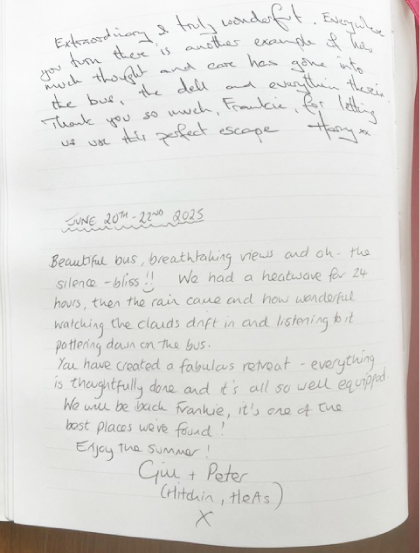 Extraordinary & truly wonderful. Everywhere
you turn there is another example of how
much thought and care has gone into
the bus, the dell and everything therein.
Thank you so much, Frankie, for letting
us use this perfect escape Harry xx
JUNE 20TH - 22ND 2025
Beautiful bus, breathtaking views and oh - the
silence - bliss!! We had a heatwave for 24
hours, then the rain came and how wonderful
watching the clouds drift in and listening to it
pattering down on the bus.
You have created a fabulous retreat - everything
is thoughtfully done and it's all so well equipped.
We will be back Frankie, it's one of the
best places we've found!
Enjoy the summer!
Gill + Peter
(Hitchin, Herts)
X